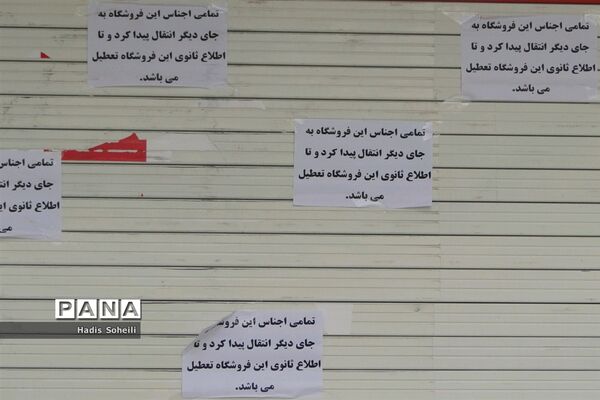 تمامی اجناس این فروشگاه به
جای دیگر انتقال پیدا کرد و تا
اطلاع ثانوی این فروشگاه تعطیل
می باشد.
تمامی اجناس این فروشگاه به
جای دیگر انتقال پیدا کرد و تا
اطلاع ثانوی این فروشگاه تعطیل
می باشد.
تمامی اجناس این فروشگاه به
جای دیگر انتقال پیدا کرد و تا
اطلاع ثانوی این فروشگاه تعطیل
می باشد.
تمامی اجناس
جای دیگر
اطلاع ثانوی
می
تمامی اجناس این
جای دیگر انتقال پیدا کرد و تا
اطلاع ثانوی این فروشگاه تعطیل
می باشد.
PANA
Hadis Soheili